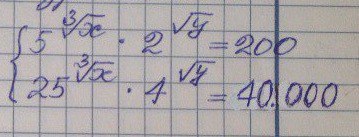 { 5^∛x · 2^√y = 200
25^∛x · 4^√y = 40.000